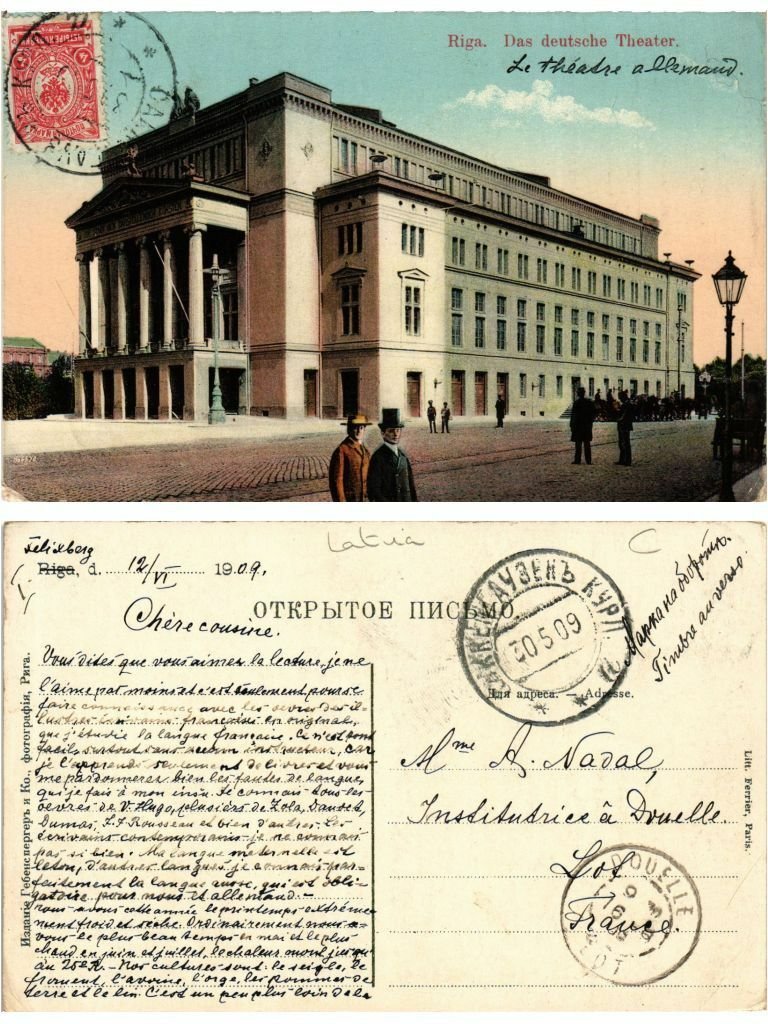 Riga. Das deutsche Theater.
Le théatre allemand.
Felixberg
Riga, d. 12/VI 1909.
Latvia
C
Chère cousine.
ОТКРЫТОЕ ПИСЬМО
КУРЛ
30.5.09
Марка на оборотѣ.
Timbre au verso.
Для адреса. — Adresse.
Vous dites que vous aimer la lecture, je ne
l'aime pas moins et c'est seulement pour se
faire connaissance avec les oevres des il-
lustres francaise en original,
que j'étudie la langue francaise. Ce n'est pas
facil, surtout sans aucun instructeur, car
je l'apprends seulement de livres et vous
me pardonnerez bien les fautes de langue,
qui je fais à mon insu. Je connais tous les
oevres de V. Hugo, plusiers de Zola, Daudet,
Dumas, J. J Rousseau et bien d'autres. Les
écrivains contemporains je ne connais
pas si bien. Ma langue maternelle est
leton, d'autres langues je connais par-
faitement la langue russe, qui est obli-
gatoire pour nous et allemand. —
Nous avons cette année le printemps extrême-
ment froid et sèche. Ordinairement nous a-
vons le plus beau temps en mai et le plus
chaud en juin et juillet, la chaleur mont jusqu'
au 25° R. — Nos cultures sont: le seigle, le
froment, l'avoine, l'orge, les pommes de
terre et le lin. C'est un peu plus loin de la
Mme A. Nadal,
Institutrice à Douelle.
Lot
France.
DOUELLE
LOT
Изданіе Гебенспергеръ и Ко. фотографія, Рига.
Litt. Ferrier, Paris.